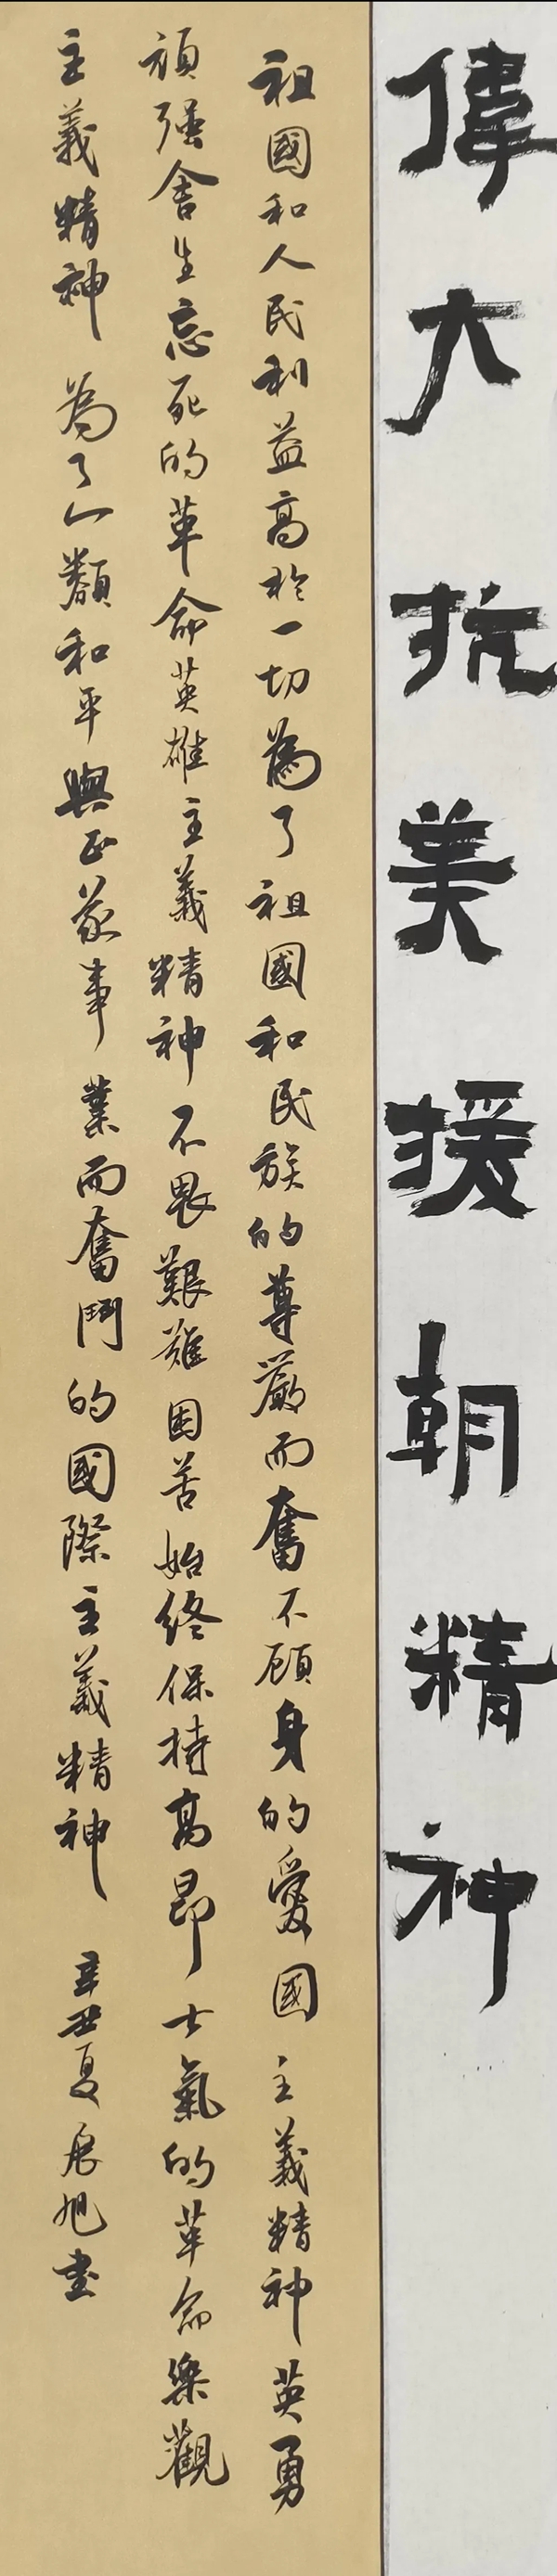 偉大抗美援朝精神
祖國和人民利益高於一切為了祖國和民族的尊嚴而奮不顧身的愛國主義精神英勇
頑强舍生忘死的革命英雄主義精神不畏艱難困苦始終保持高昂士氣的革命樂觀
主義精神為了人類和平與正義事業而奮鬥的國際主義精神
辛丑夏 旭書